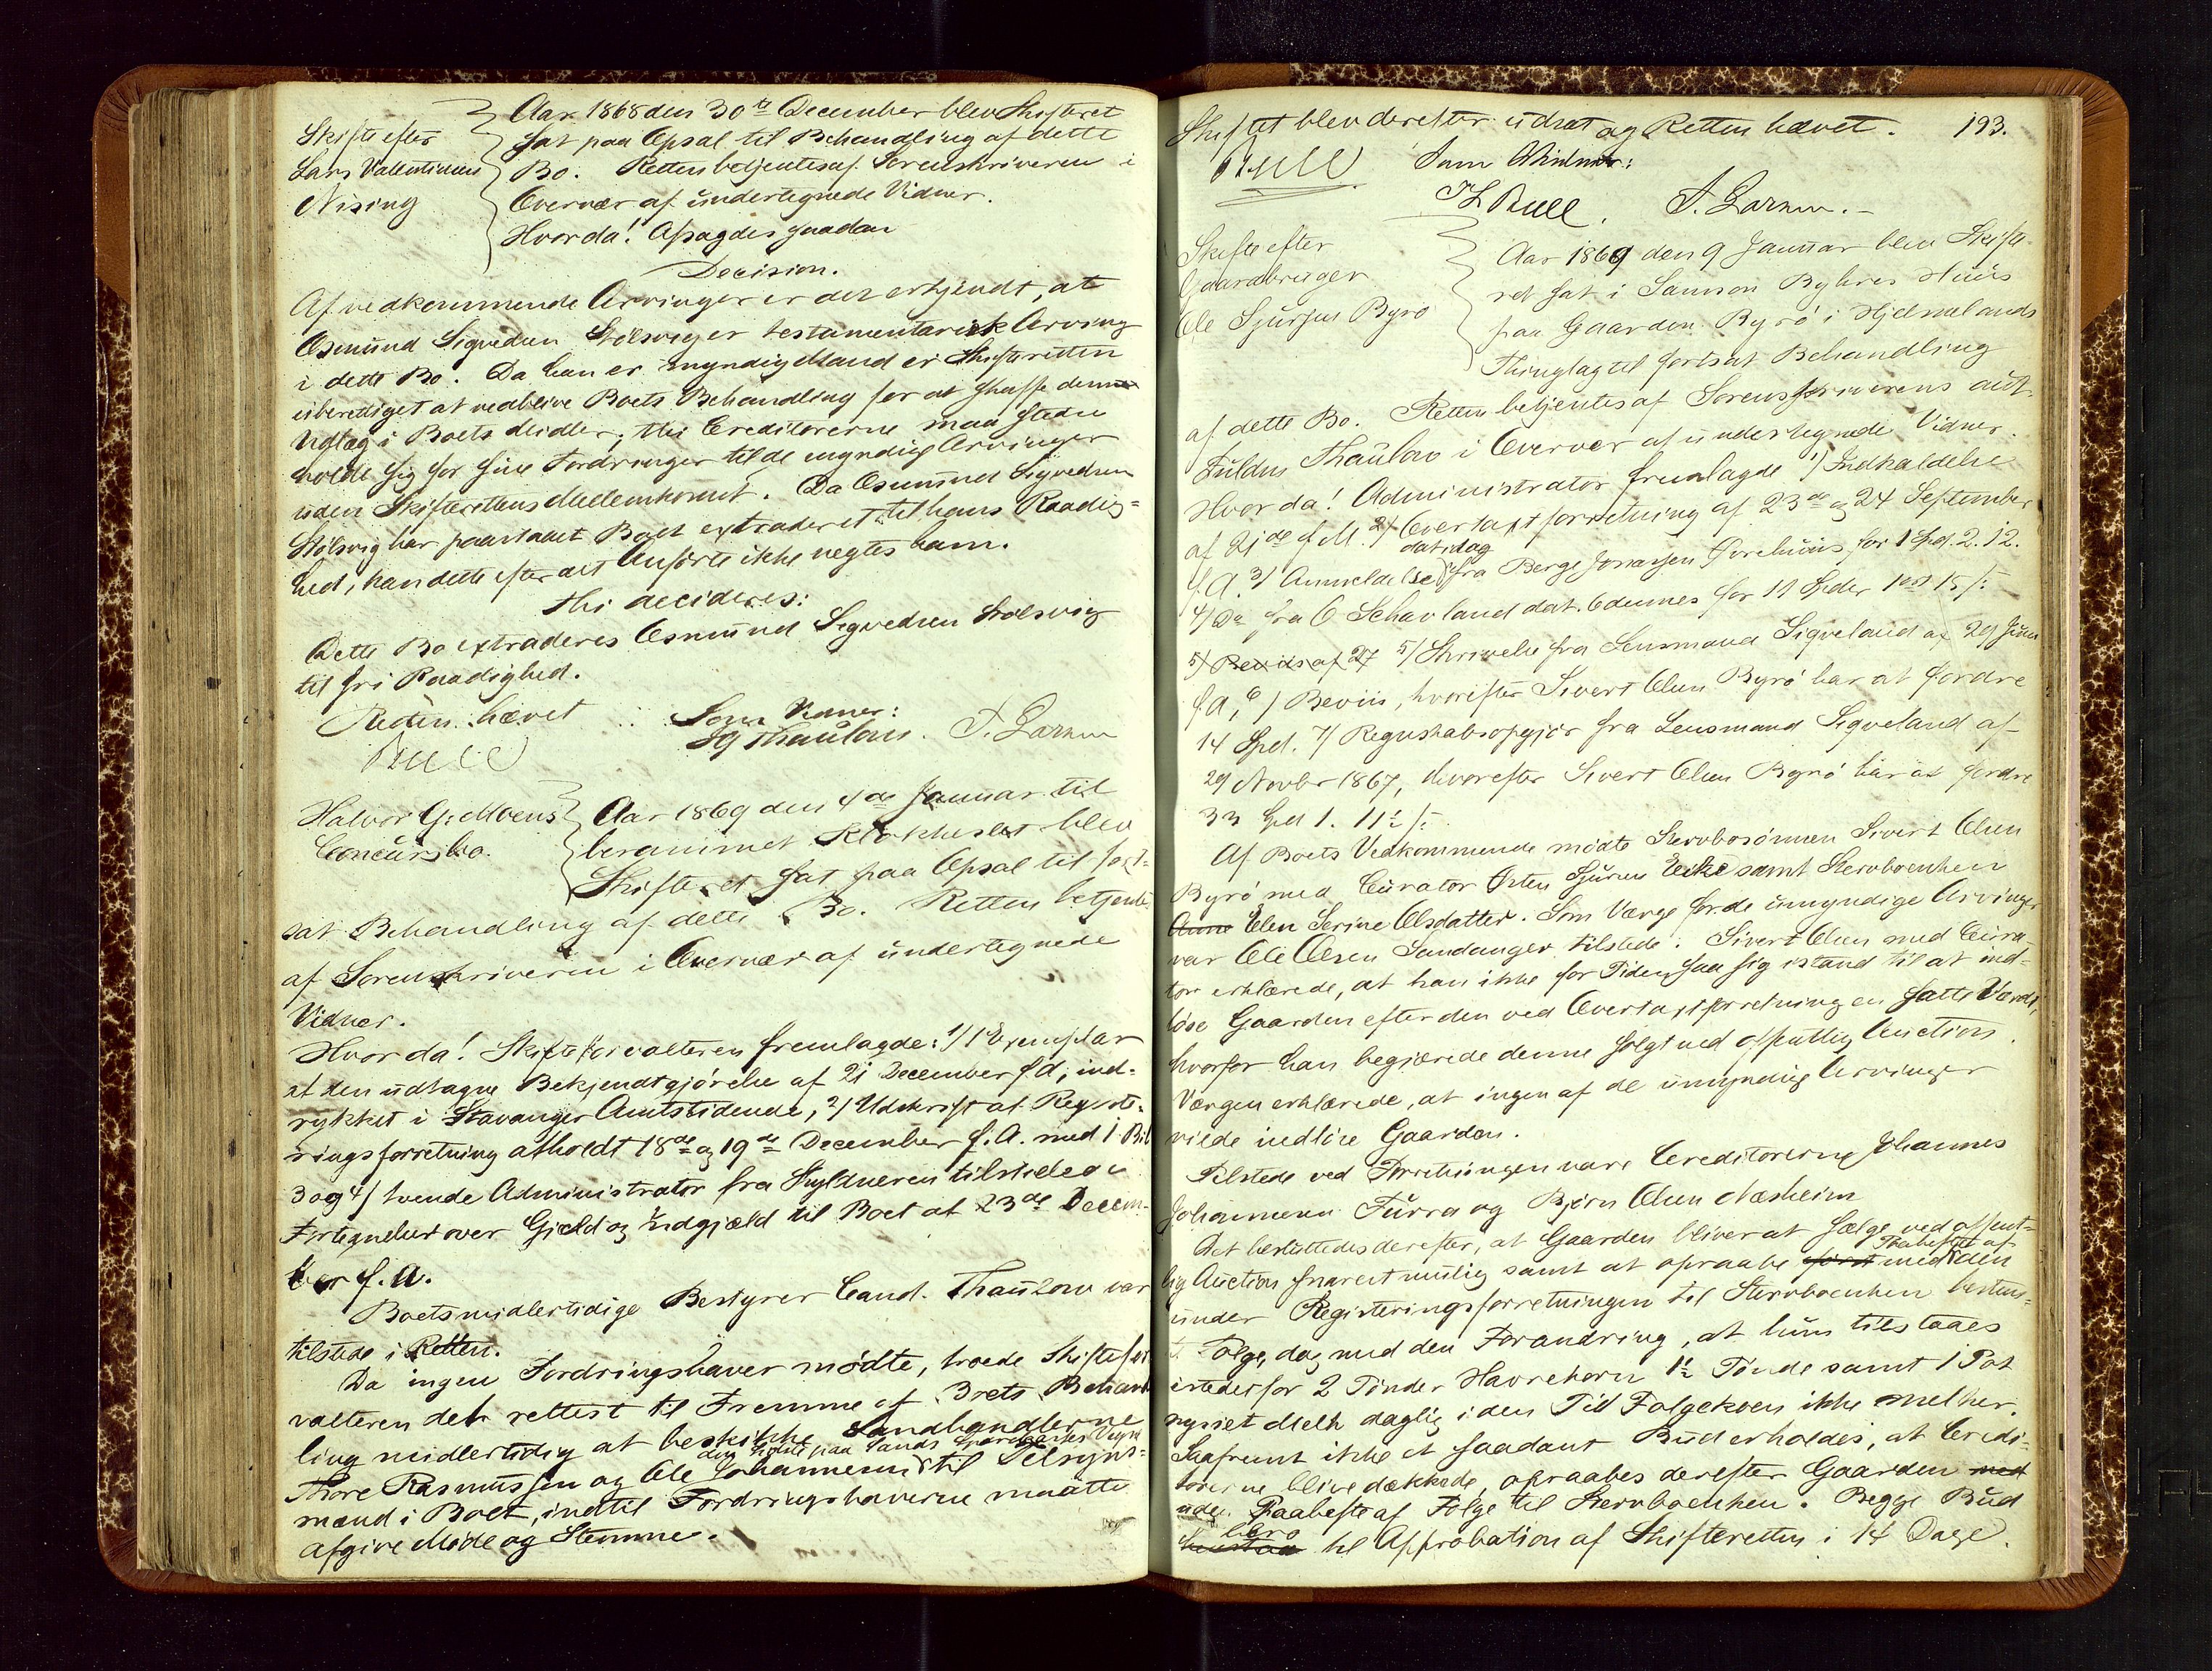 Skifte efter
Lars Valentinsen
Nising
Aar 1868 den 30te December blev Skifteret
sat paa Opsal til Behandling af dette
Bo. Retten betjentes af Sorenskriveren i
Overvær af undertegnede Vidner.
Hvorda! Afsagdes saadan
Decision.
Af vedkommende Arvinger er det erkjendt, at
Osmund Sigvedsen Stølsvig er testamentarisk Arving
i dette Bo. Da han er myndig Mand er Skifteretten
uberettiget at vedblive Boets Behandling for at skaffe denne
Udlæg i Boets Midler, thi Creditorerne maa
holde sig for sine Fordringer til de myndige Arvinger
uden Skifterettens Mellemkomst. Da Osmund Sigvedsen
Stølsvig har paastaaet Boet extraderet til hans Raadig=
hed, kan dette efter det Anførte ikke negtes ham.
thi decideres:
Dette Bo extraderes Osmund Sigvedsen Stølsvig
til fri Raadighed.
Retten hævet
Som Vidner:
Bull
Thaulow. T. Larsen
Halvor G. Moens
Concursbo.
Aar 1869 den 4de Januar til
berammet Klokkeslet blev
Skifteret sat paa Opsal til fort=
sat Behandling af dette Bo. Retten betjentes
af Sorenskriveren i Overvær af undertegnede
Vidner.
Hvorda! Skifteforvalteren fremlagde: 1/ 1 Exemplar
af den udtagne Bekjendtgjørelse af 21 December f. A., ind=
rykket i Stavanger Amtstidende, 2/ Udskrift af Registe=
ringsforretning afholdt 18de og 19de December f. A. med 1 Bil
3 og 4/ tvende Administrator fra Skyldneren tilstillede
Fortegnelser over Gjæld og Indgjæld til Boet af 23de Decem=
ber f. A.
Boets midlertidige Bestyrer Cand. Thaulow var
tilstede i Retten.
Da ingen Fordringshaver mødte, troede Skiftefor
valteren det rettest til Fremme af Boets Behand
ling midlertidig at beskikke Landhandlerne
Thore Rasmussen og Ole Johannesen til Tilsyns=
mænd i Boet, indtil Fordringshaverne maatte
afgive Møde og Stemme.
193.
Skiftet blev derefter udsat og Retten hævet.
Bull
Som Vidner:
Bull. T. Larsen.
Skifte efter
Gaardbruger
Ole Sjursen Byrø
Aar 1869 den 9 Januar blev Skifte-
ret sat i Samson Byhres Huus
paa Gaarden Byrø i Hjelmelands
Thinglag til fortsat Behandling
af dette Bo. Retten betjentes af Sorenskriverens aut.
Fuldm. Thaulow i Overvær af undertegnede Vidner.
Hvorda! Administrator fremlagde 1/ Indkaldelse
af 21de f. M. 2/ Overtaxtforretning af 23de og 24 September
f. A. 3/ Anmeldelse dat. idag fra Berge Jonassen for 1 Spd. 2. 12.
4/ Do fra O Schavland dat. for 11 Spdlr 1 ort 15 ß.
5/ Bevis af 27 5/ Skrivelse fra Lensmand Sigveland af 29 Juni
f. A., 6/ Beviis, hvorefter Sivert Olsen Byrø har at fordre
14 Spd. 7/ Regnskabsopgjør fra Lensmand Sigveland af
29 Novbr 1867, hvorefter Sivert Olsen Byrø har at fordre
33 Spd 1. 11½ ß.
Af Boets Vedkommende mødte Stervbosønnen Sivert Olsen
Byrø med Curator Østen Sjursen Eeike samt Stervboenken
Anne Elen Serine Olsdatter. Som Værge for de umyndige Arvinger
var Ole Olsen Sandanger tilstede. Sivert Olsen med Cura-
tor erklærede, at han ikke for Tiden saa sig istand til at ind=
løse Gaarden efter den ved Overtaxtforretningen satte Værdi,
hvorfor han begjærede denne solgt ved offentlig Auction.
Værgen erklærede, at ingen af de umyndige Arvinger
vilde indløse Gaarden.
Tilstede ved Forretningen vare Creditorerne Johannes
Johannesen Furra og Bjørn Olsen Næsheim
Det besluttedes derefter, at Gaarden bliver at sælge ved offent=
lig Auction snarest mulig samt at opraabe først med Paahefte af den
under Registeringsforretningen til Stervboenken bestem=
te Følge, dog med den Forandring, at hun tilstaaes
istedetfor 2 Tønder Havrekorn 1½ Tønde samt 1 Pot
nysiet Melk daglig i den Tid Følgekoen ikke melker.
Saafremt ikke et saadant Bud erholdes, at Credi=
torerne blive dækkede, opraabes derefter Gaarden med
uden Paahefte af Følge til Stervboenken. Begge Bud
bero til Approbation af Skifteretten i 14 Dage.